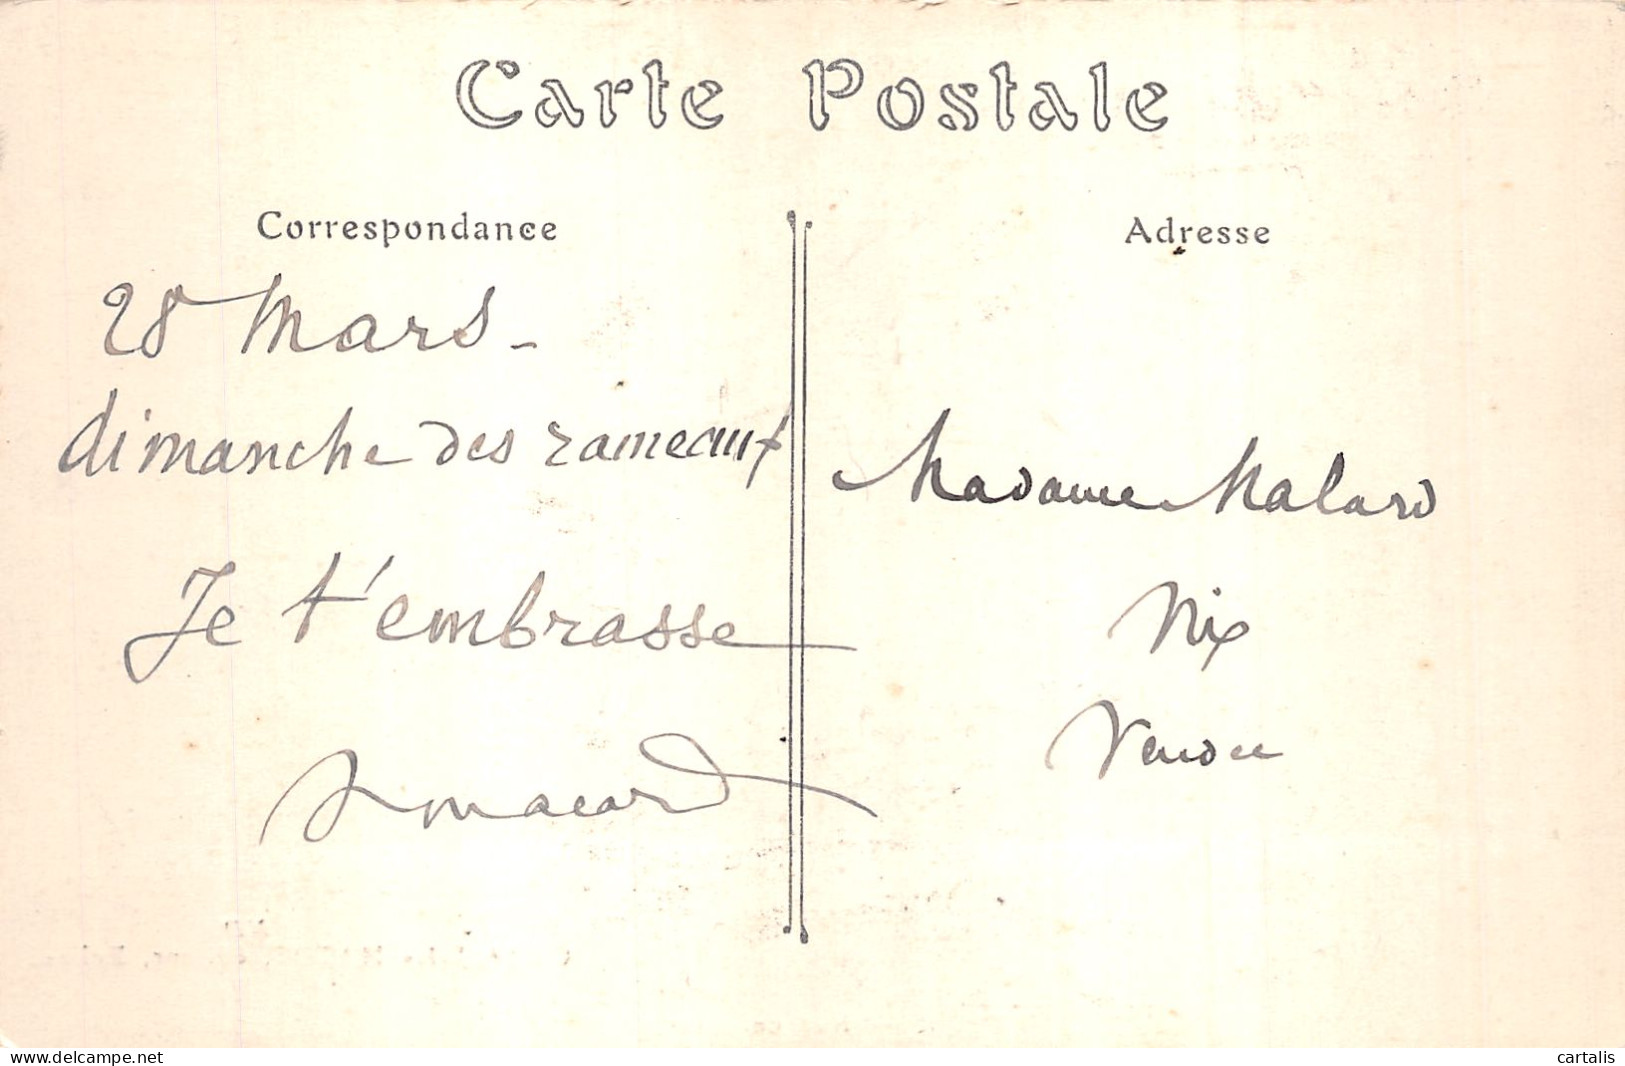 Carte Postale
Correspondance
28 Mars -
dimanche des rameaux
Je t'embrasse
Adresse
Madame Malard
Nix
Vendée
www.delcampe.net
cartalis